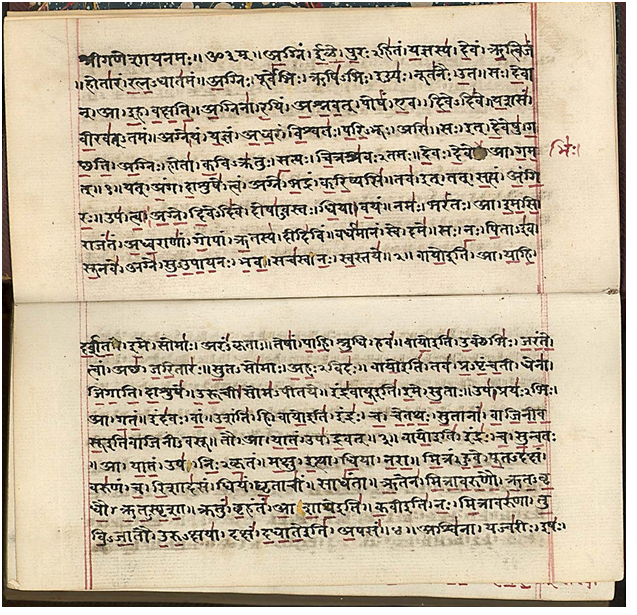 श्रीगणेशायनमः॥ ॐ३म्॥ अग्निं। ईळे। पुरःऽहितं। यज्ञस्य। देवं। ऋत्विजं
॥होतारं। रत्नऽधातमं॥ अग्निः। पूर्वेभिः। ऋषिऽभिः। ईड्यः। नूतनैः। उत। सः। देवा
न्। आ। इह। वक्षति॥ अग्निना। रयिं। अश्नवत्। पोषं। एव। दिवेऽदिवे। यशसं।
वीरवत्ऽतमं॥ अग्ने। यं। यज्ञं। अध्वरं। विश्वतः। परिऽभूः। असि। सः। इत्। देवेषु। ग
च्छति। अग्निः। होता। कविऽक्रतुः। सत्यः। चित्रश्रवःऽतमः॥ देवः। देवे आ। गम
भिः।
त्॥१॥ यत्। अंग। दाशुषे। त्वं। अग्ने। भद्रं। करिष्यसि। तव। इत्। तत्। सत्यं। अंगि
रः॥ उप। त्वा। अग्ने। दिवेऽदिवे। दोषाऽवस्तः। धिया। वयं। नमः। भरंतः। आ। इमसि।
राजंतं। अध्वराणां। गोपां। ऋतस्य। दीदिविं। वर्धमानं। स्वे। दमे॥ सः। नः। पिताऽइव।
सूनवे। अग्ने। सुऽउपायनः। भव। सचस्व। नः। स्वस्तये॥२॥ वायो इति। आ। याहि।
दर्शत। इमे। सोमाः। अरंऽकृताः॥ तेषां। पाहि। श्रुधि। हवं॥ वायो इति। उक्थेभिः। जरंते।
त्वां। अच्छ। जरितारः॥ सुतऽसोमाः। अहःऽविदः॥ वायो इति। तव। प्रऽपृंचती। धेना।
जिगाति। दाशुषे॥ उरूची। सोमऽपीतये॥ इंद्रवायू इति। इमे। सुताः॥ उप। प्रयःऽभिः।
आ। गतं॥ इंदवः। वां। उशंति। हि॥ वायो इति। इंद्रः। च। चेतथः। सुतानां। वाजिनीव
सू इति वाजिनीऽवसू॥ तौ। आ। यातं। उप। द्रवत्॥३॥ वायो इति। इंद्रः। च। सुन्वतः
॥ आ। यातं। उप। निःऽकृतं। मक्षु। इत्था। धिया। नरा॥ मित्रं। हुवे। पूतऽदक्षं।
वरुणं। च। रिशादसं। धियं। घृताचीं। साधंता॥ ऋतेन। मित्रावरुणौ। ऋतऽवृ
धौ। ऋतऽस्पृशा॥ क्रतुं। बृहंतं। आशाथे इति॥ कवी इति। नः। मित्रावरुणा। तु
विऽजातौ। उरुऽक्षया। दक्षं। दधाते इति। अपसं॥४॥ अश्विना। यज्वरीः। इषः।